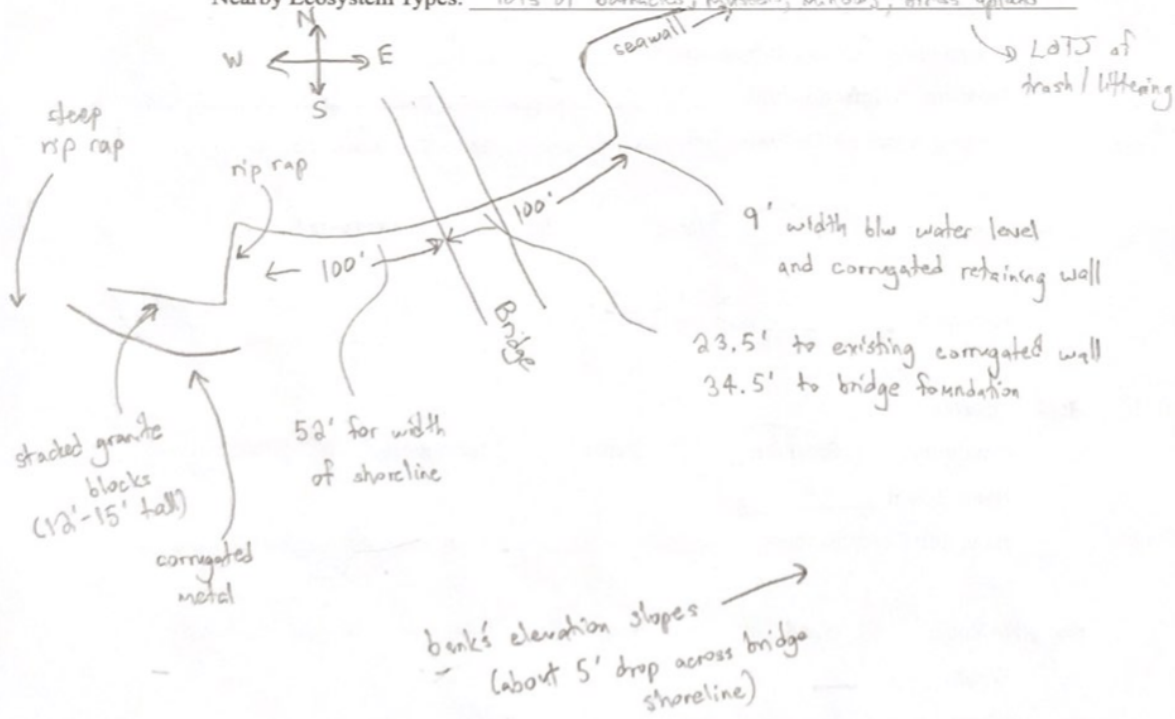 Nearby Ecosystem Types: lots of barnacles,
N
W E
S
seawall
LOTS of
trash / littering
steep
rip rap
rip rap
100'
100'
Bridge
9' width b/w water level
and corrugated retaining wall
23.5' to existing corrugated wall
34.5' to bridge foundation
52' for width
of shoreline
stacked granite
blocks
(12'-15' tall)
corrugated
metal
bank's elevation slopes
(about 5' drop across bridge
shoreline)